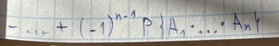 - ... + (-1)^{n-1} P{A₁ · ... · Aₙ}